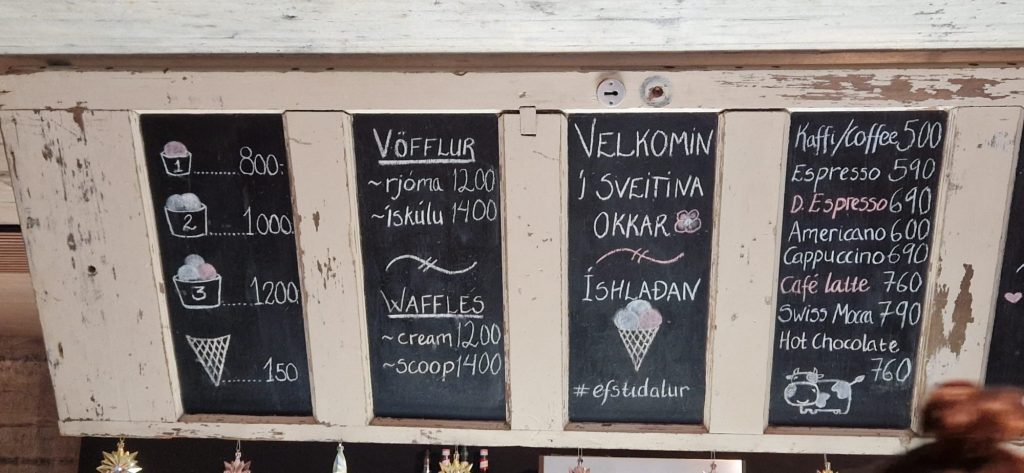 1 ........ 800.-
2 ......... 1000
3 ......... 1200
......... 150
VÖFFLUR
~rjóma 1200
~ískúlu 1400
WAFFLES
~cream 1200
~scoop 1400
VELKOMIN
Í SVEITINA
OKKAR
ÍSHLAÐAN
#efstidalur
Kaffi/Coffee 500
Espresso 590
D. Espresso 690
Americano 600
Cappuccino 690
Café latte 760
Swiss Mocca 790
Hot Chocolate
760